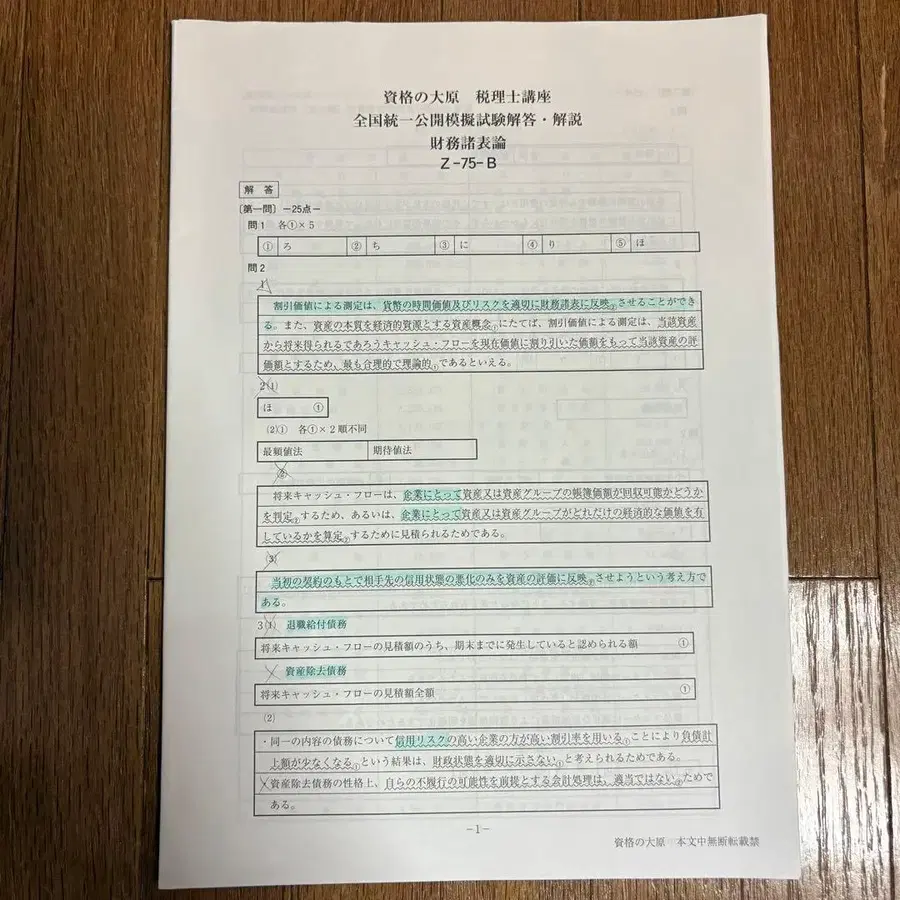 資格の大原 税理士講座
全国統一公開模擬試験解答・解説
財務諸表論
Z-75-B
解 答
〔第一問〕 -25点-
問1 各①×5
① ろ ② ち ③ に ④ り ⑤ ほ
問2
1
割引価値による測定は、貨幣の時間価値及びリスクを適切に財務諸表に反映②させることができ
る。また、資産の本質を経済的資源とする資産概念①にたてば、割引価値による測定は、当該資産
から将来得られるであろうキャッシュ・フローを現在価値に割り引いた価額をもって当該資産の評
価額とするため、最も合理的で理論的①であるといえる。
2(1)
ほ ①
(2)① 各①×2順不同
最頻値法 期待値法
②
将来キャッシュ・フローは、企業にとって資産又は資産グループの帳簿価額が回収可能かどうか
を判定②するため、あるいは、企業にとって資産又は資産グループがどれだけの経済的な価値を有
しているかを算定②するために見積られるためである。
(3)
当初の契約のもとで相手先の信用状態の悪化のみを資産の評価に反映②させようという考え方で
ある。
3(1) 退職給付債務
将来キャッシュ・フローの見積額のうち、期末までに発生していると認められる額 ①
資産除去債務
将来キャッシュ・フローの見積額全額 ①
(2)
・同一の内容の債務について信用リスクの高い企業の方が高い割引率を用いる①ことにより負債計
上額が少なくなる①という結果は、財政状態を適切に示さない①と考えられるためである。
資産除去債務の性格上、自らの不履行の可能性を前提とする会計処理は、適当ではない②ためで
ある。
-1-
資格の大原 本文中無断転載禁